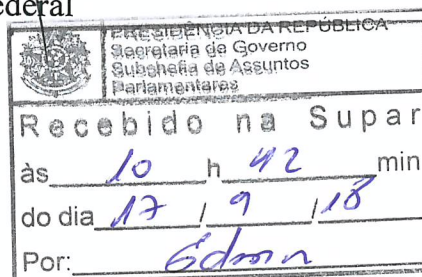 ederal
PRESIDÊNCIA DA REPÚBLICA
Secretaria de Governo
Subchefia de Assuntos
Parlamentares
Recebido na Supar
às 10 h 42 min
do dia 17 / 9 / 18
Por: